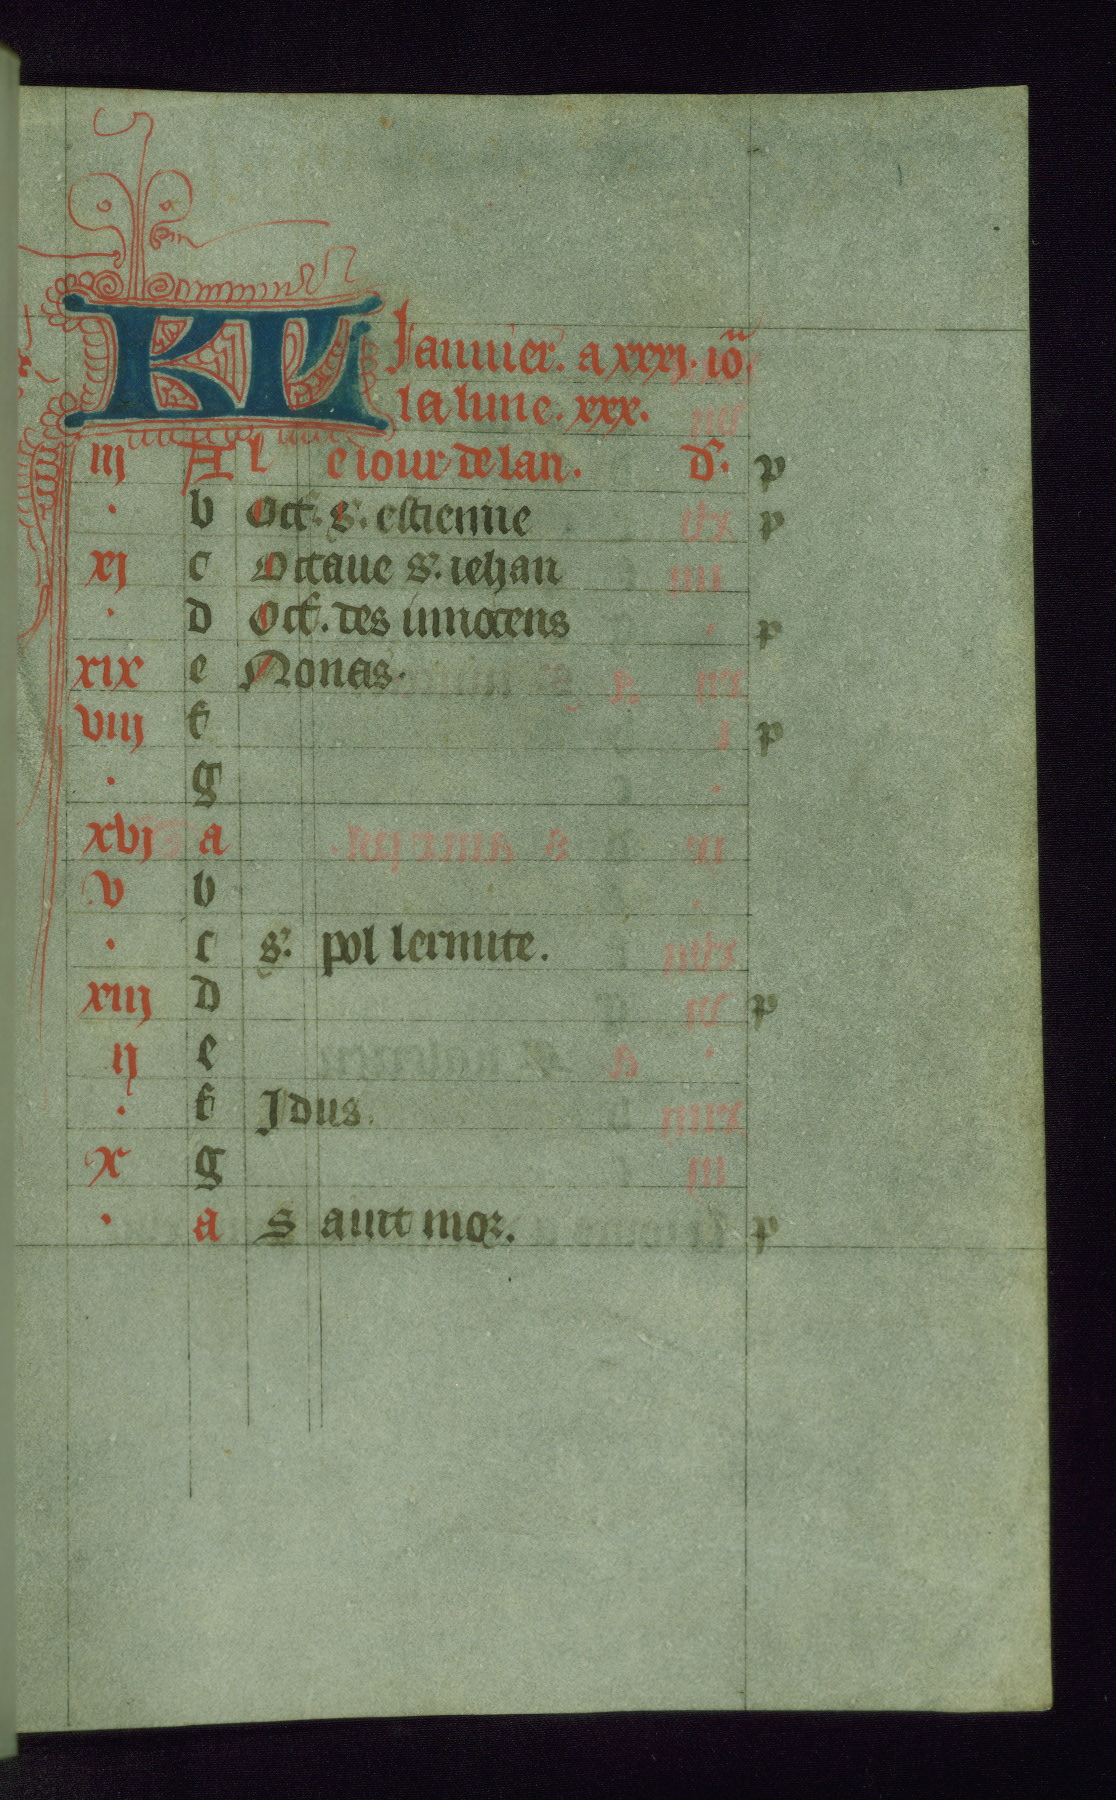 KL Januier. a xxxj. iō.
la lune. xxx.
iij A l e iour de lan. d'. p
. b Oct. s'. estienne p
xj c Octaue s'. iehan
. d Oct. des innocens p
xix e Nonas.
viij f p
. g
xvj a
v b
. c s'. pol lermite.
xiij d p
ij e
. f Jdus.
x g
. a S aint mor. p